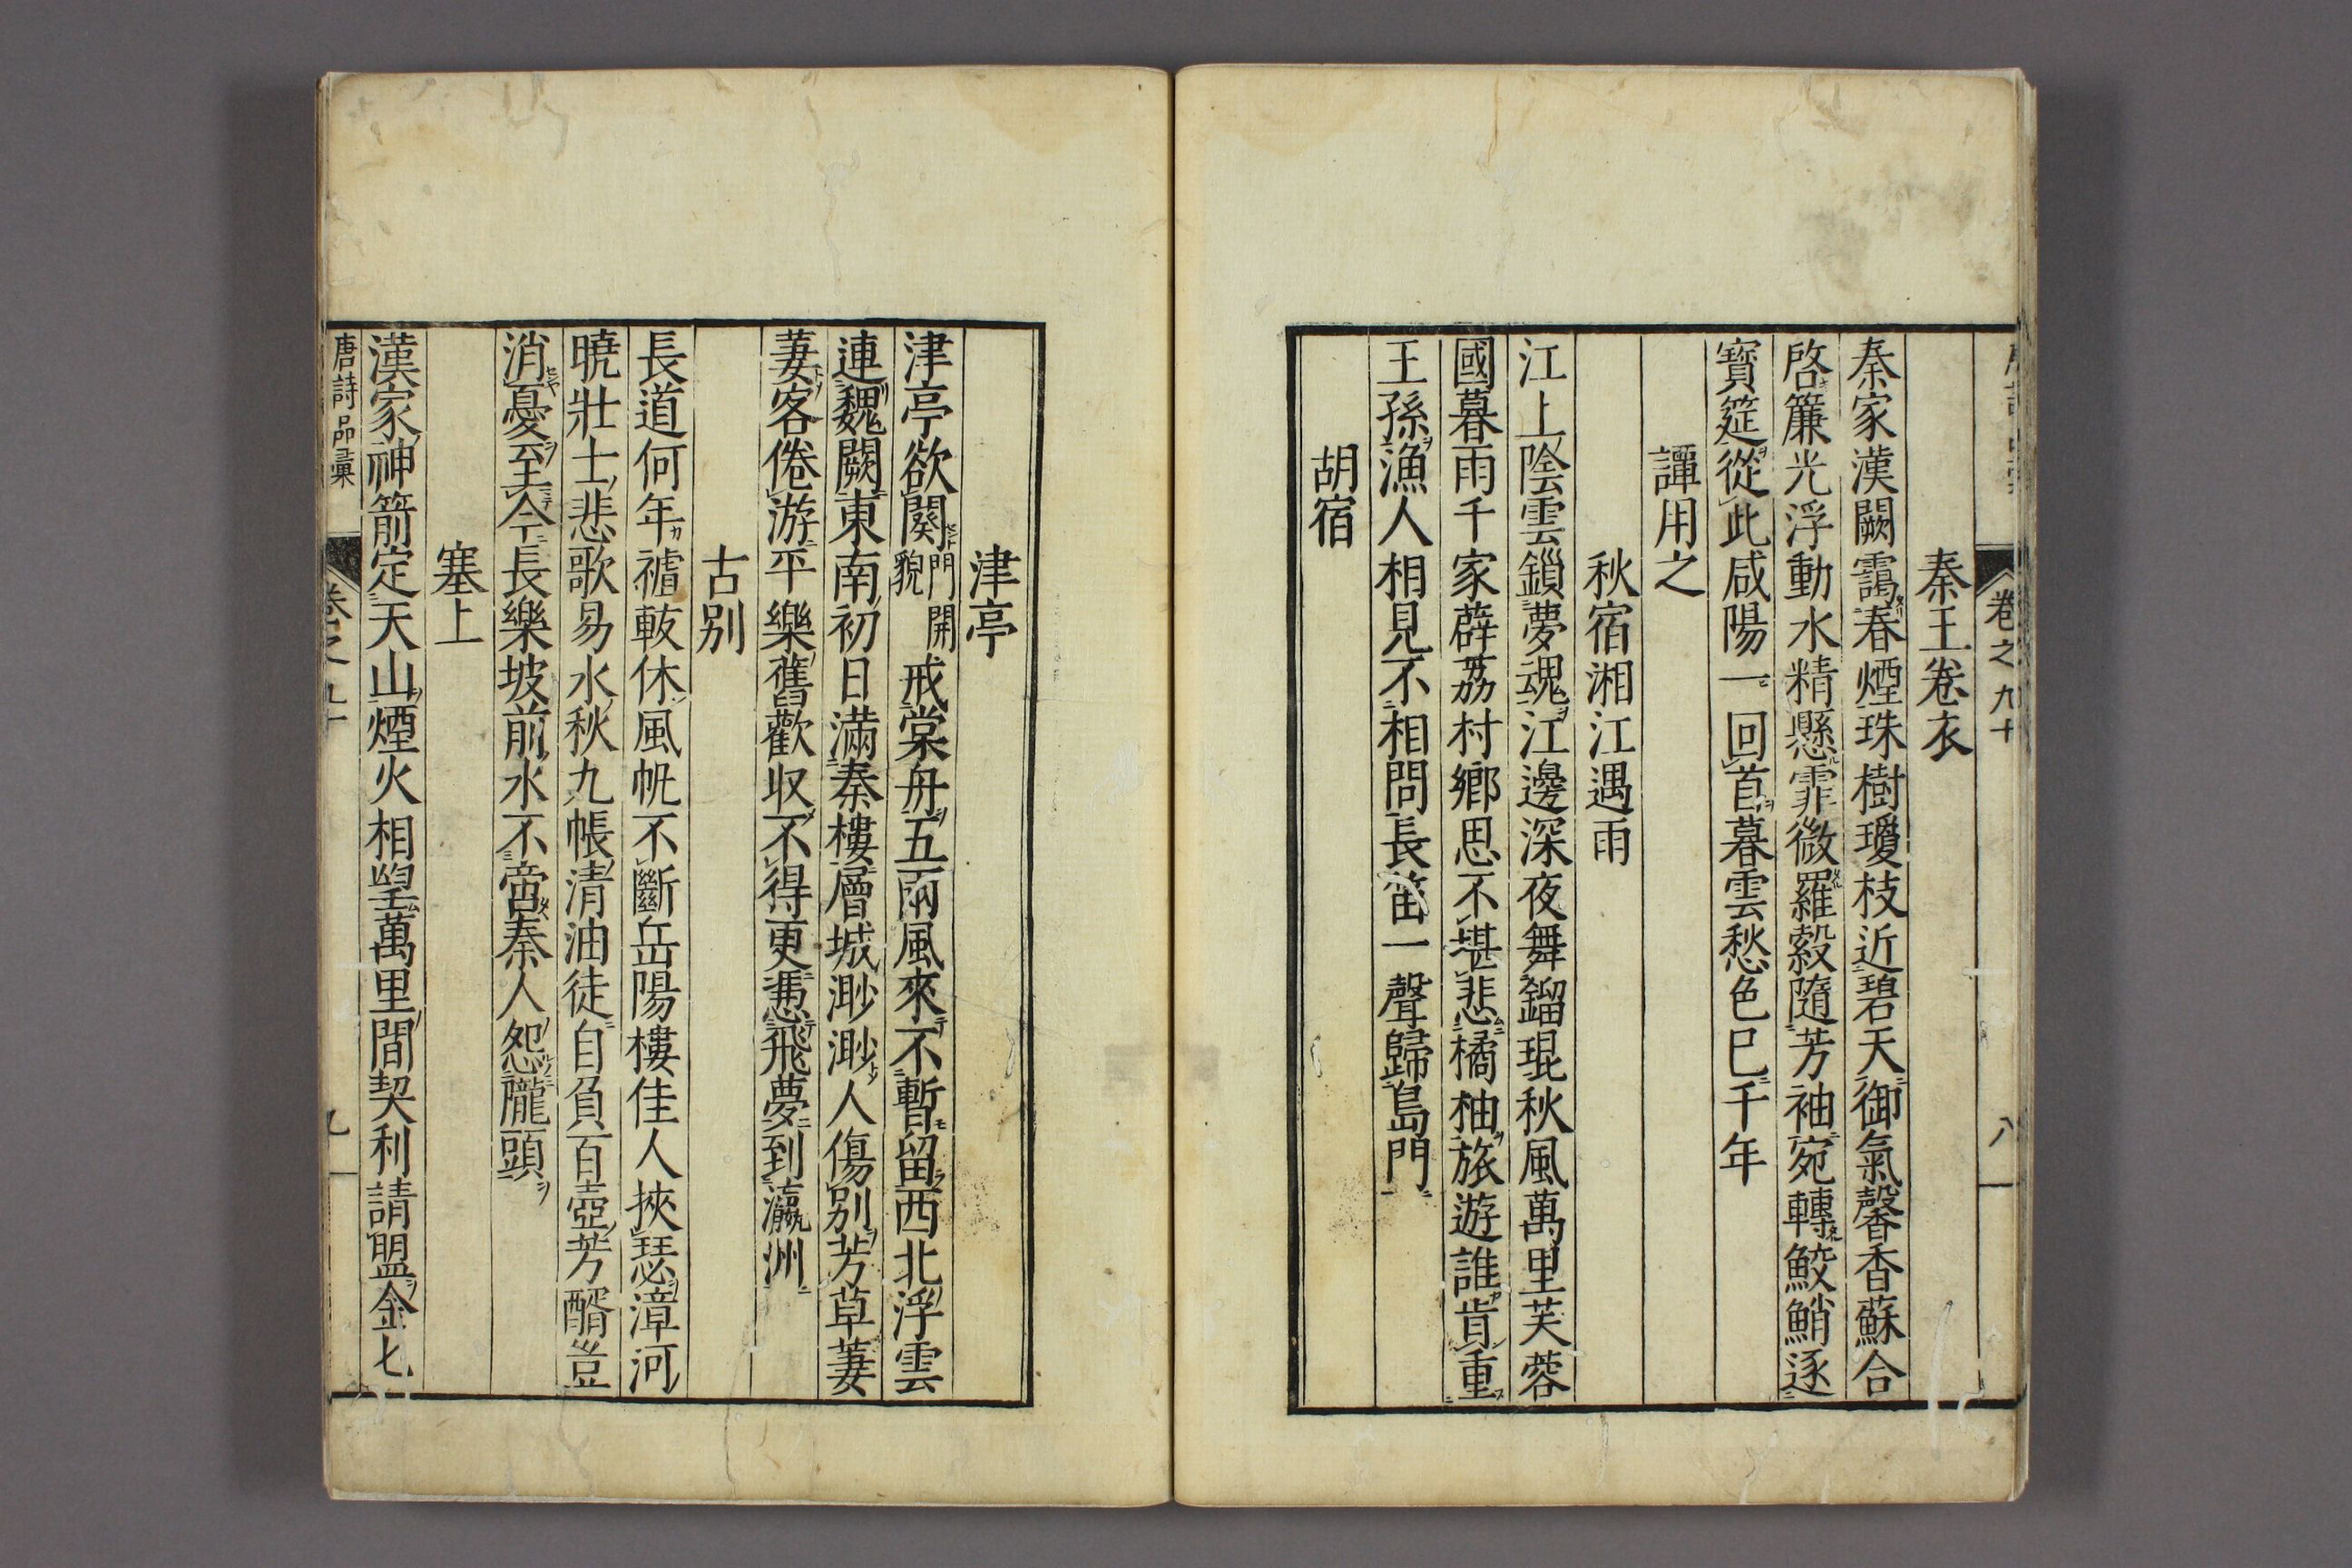 卷之九十
八
秦王卷衣
秦家漢闕靄春煙珠樹瓊枝近碧天御氣馨香蘇合
啓簾光浮動水精懸霏微羅縠隨芳袖宛轉鮫鮹逐
寶筵從此咸陽一回首暮雲愁色巳千年
譚用之
秋宿湘江遇雨
江上陰雲鎻夢魂江邊深夜舞鎦琨秋風萬里芙蓉
國暮雨千家薜荔村鄉思不堪悲橘柚旅遊誰肯重
王孫漁人相見不相問長笛一聲歸島門
胡宿
津亭
津亭欲闋門門開貌戒棠舟五兩風來不暫留西北浮雲
連魏闕東南初日滿秦樓層城渺渺人傷別芳草萋
萋客倦游平樂舊歡収不得更慿飛夢到瀛洲
古別
長道何年祖軷休風帆不斷岳陽樓佳人挾瑟漳河
曉壯士悲歌易水秋九帳清油徒自負百壺芳醑豈
消憂至今長樂坡前水不啻秦人怨隴頭
塞上
漢家神箭定天山煙火相望萬里間契利請盟金匕
唐詩品彙
卷之九十
九